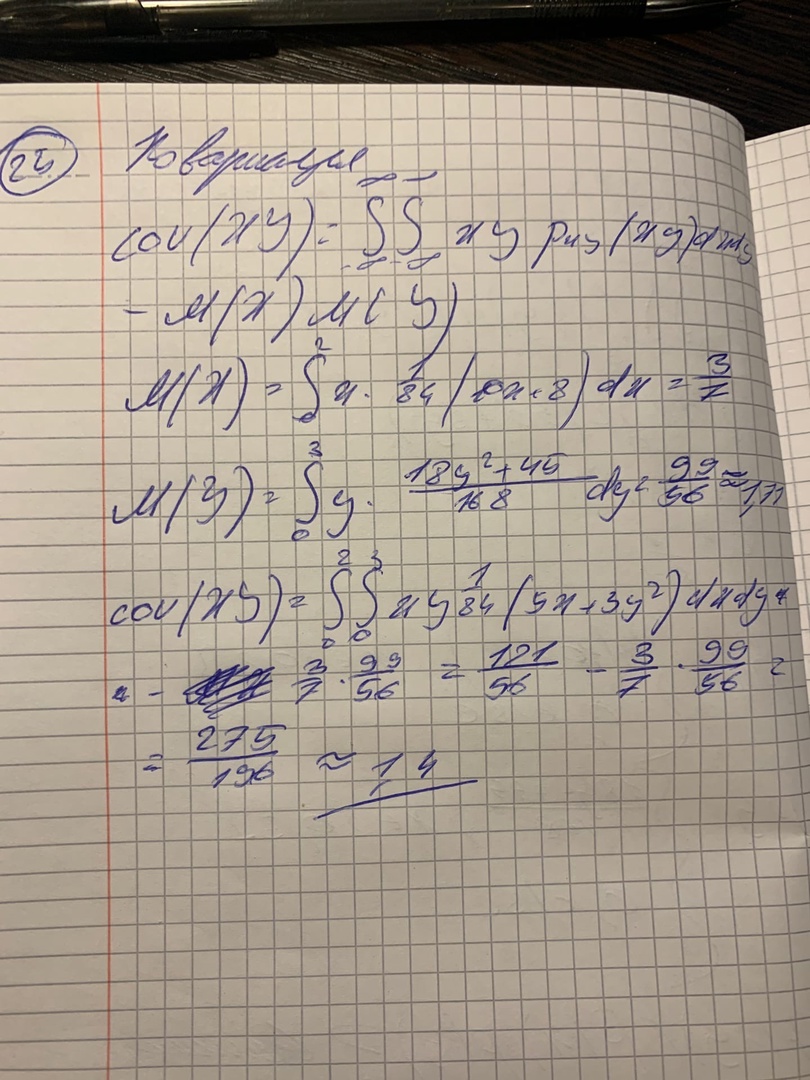 23
Ковариация
cov(XY) = ∫∫ xy pxy(xy)dxdy
- M(X) M(Y)
M(X) = ∫₀² x · 1/84 (10x+8) dx = 3/7
M(Y) = ∫₀³ y · (18y²+45)/168 dy = 99/56 ≈ 1,77
cov(XY) = ∫₀² ∫₀³ xy 1/84 (5x+3y²) dxdy -
- 3/7 · 99/56 = 121/56 - 3/7 · 99/56 =
= 275/196 ≈ 1,4